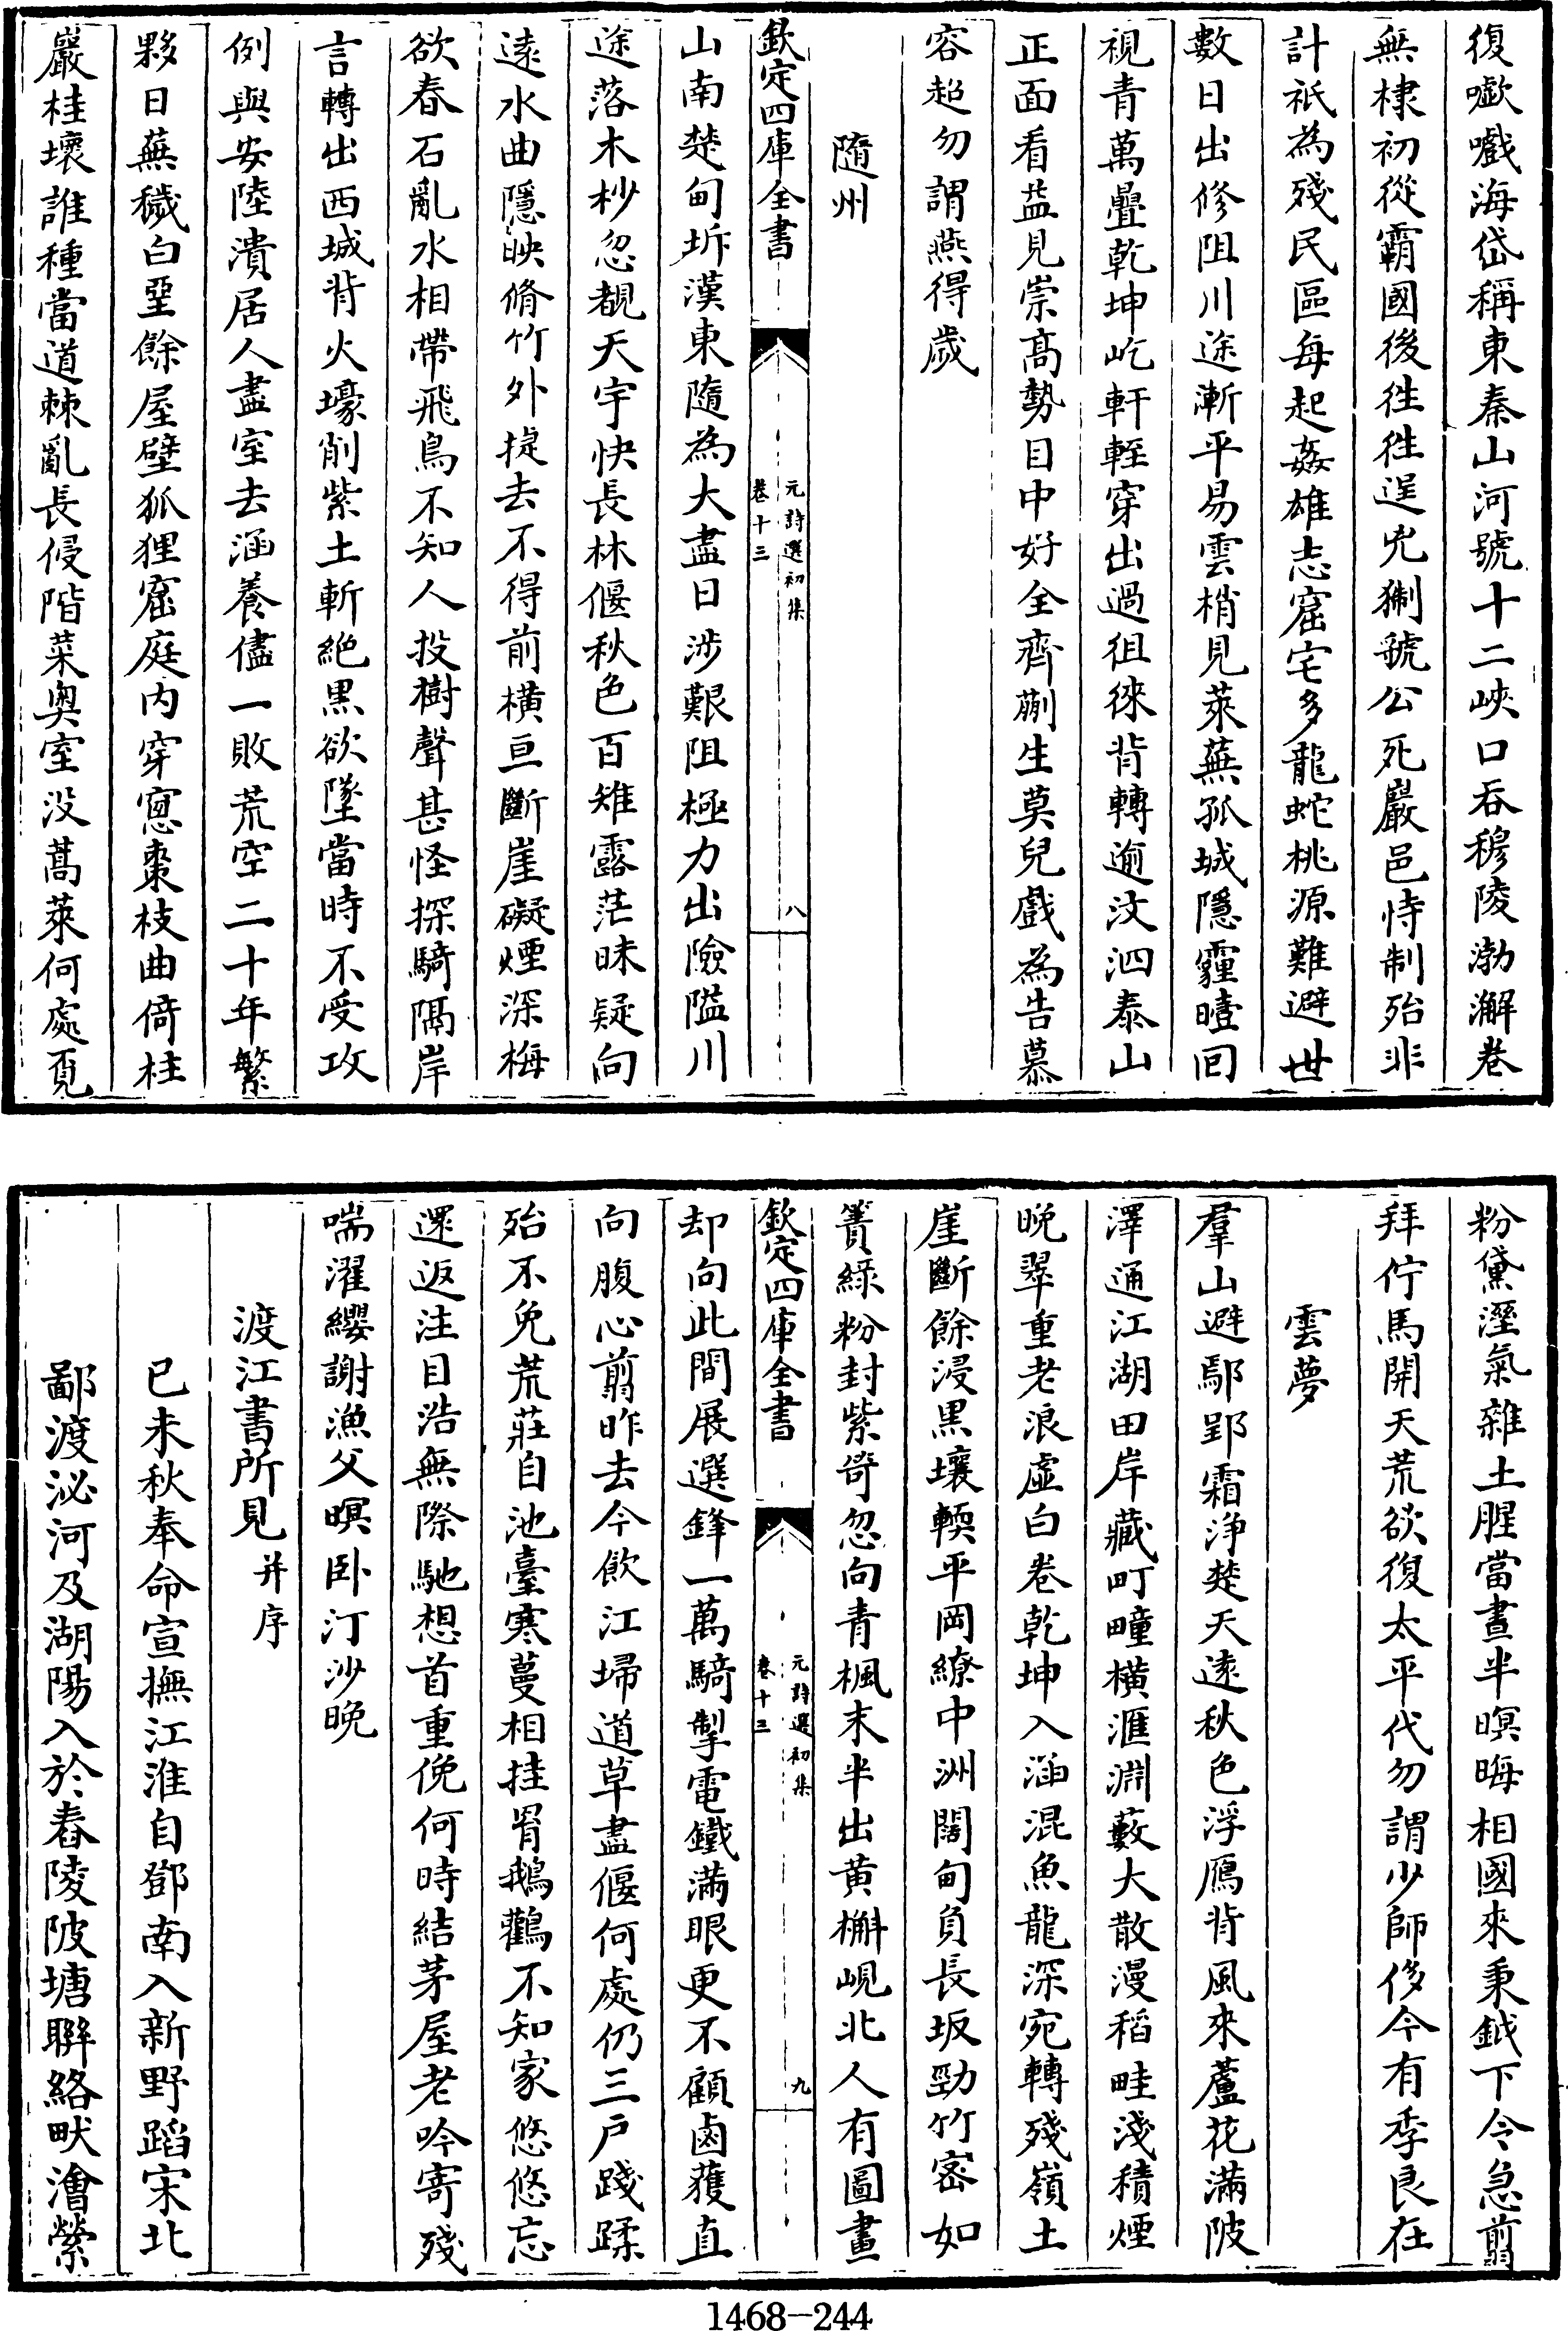 復嗽嚱海岱稱東秦山河號十二峽口吞穆陵渤澥卷
無棣初從霸國後徃徃逞兇猘虢公死巖邑恃制殆非
計祇為殘民區每起姦雄志窟宅多龍蛇桃源難避世
數日出修阻川途漸平易雲梢見萊蕪孤城隱霾曀回
視青萬疊乾坤屹軒輊穿出過徂徠背轉逾汶泗泰山
正面看益見崇髙勢目中好全齊蒯生莫兒戲為告慕
容超勿謂燕得歲
隨州
欽定四庫全書
元詩選初集
卷十三
八
山南楚甸坼漢東隨為大盡日涉艱阻極力出險隘川
途落木杪忽覩天宇快長林偃秋色百雉露茫昧疑向
遠水曲隱映脩竹外㨗去不得前横亘斷崖礙煙深梅
欲春石亂水相帶飛鳥不知人投樹聲甚怪探騎隔岸
言轉出西城背火壕削紫土斬絶黒欲墜當時不受攻
例與安陸潰居人盡室去涵養儘一敗荒空二十年繁
夥日蕪穢白堊餘屋壁狐狸窟庭内穿窻棗枝曲倚柱
巖桂壞誰種當道棘亂長侵階菜奥室没蒿萊何處覔
粉黛溼氣雜土腥當晝半暝晦相國來秉鉞下令急翦
拜佇馬開天荒欲復太平代勿謂少師侈今有季良在
雲夢
羣山避鄢郢霜浄楚天逺秋色浮鴈背風來蘆花滿陂
澤通江湖田岸藏町疃横滙淵藪大散漫稻畦淺積煙
晩翠重老浪虛白卷乾坤入涵混魚龍深宛轉殘嶺土
崖斷餘浸黒壤輭平岡繚中洲闊甸負長坂勁竹密如
簀緑粉封紫笴忽向青楓末半出黄槲峴北人有圖畫
欽定四庫全書
元詩選初集
卷十三
九
却向此間展選鋒一萬騎掣電鐵滿眼更不顧鹵蔱直
向腹心翦昨去今飲江埽道草盡偃何處仍三户踐蹂
殆不免荒莊自池臺寒蔓相挂罥鵝鸛不知家悠悠忘
還返注目浩無際馳想首重俛何時結茅屋老吟寄殘
喘濯纓謝漁父暝卧汀沙晩
渡江書所見并序
已未秋奉命宣撫江淮自鄧南入新野蹈宋北
鄙渡泌河及湖陽入於舂陵陂塘聨絡畎澮縈
1468-244